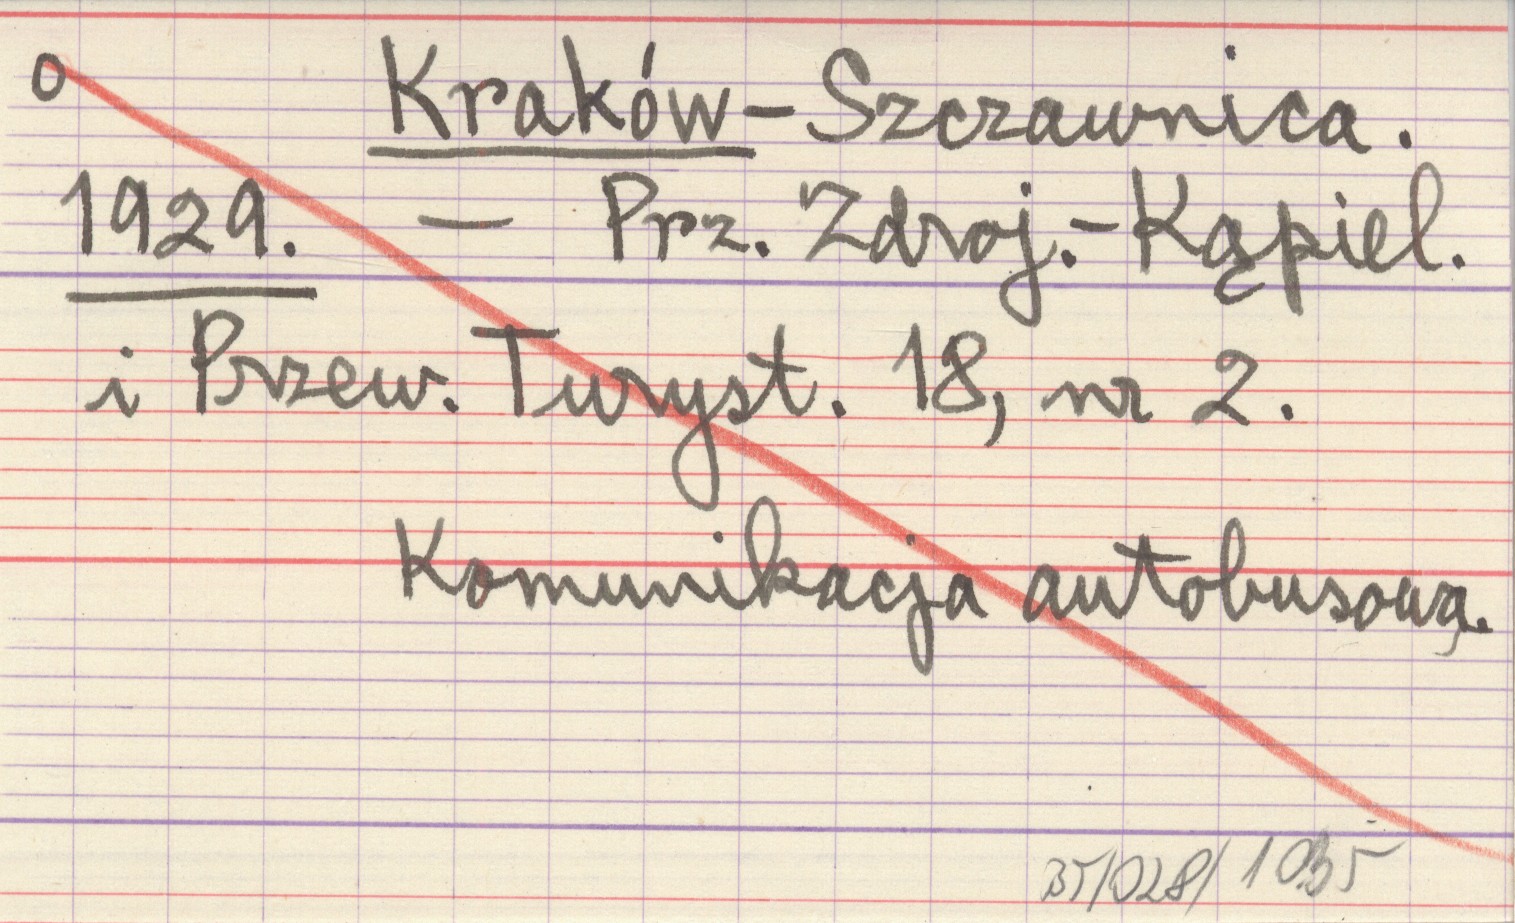 o Kraków-Szczawnica.
1929. — Prz. Zdroj.-Kąpiel.
i Przew. Turyst. 18, nr 2.
Komunikacja autobusową.